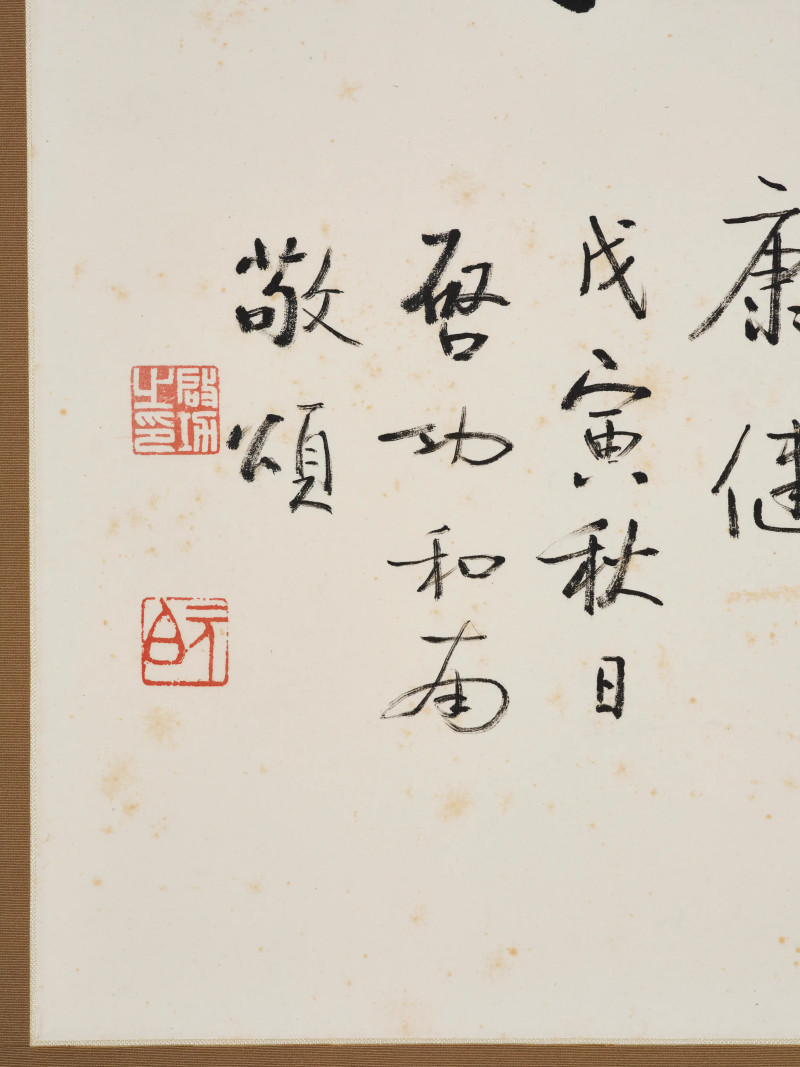 康健
戊寅秋日
启功和南
敬頌
啟功之印
元白